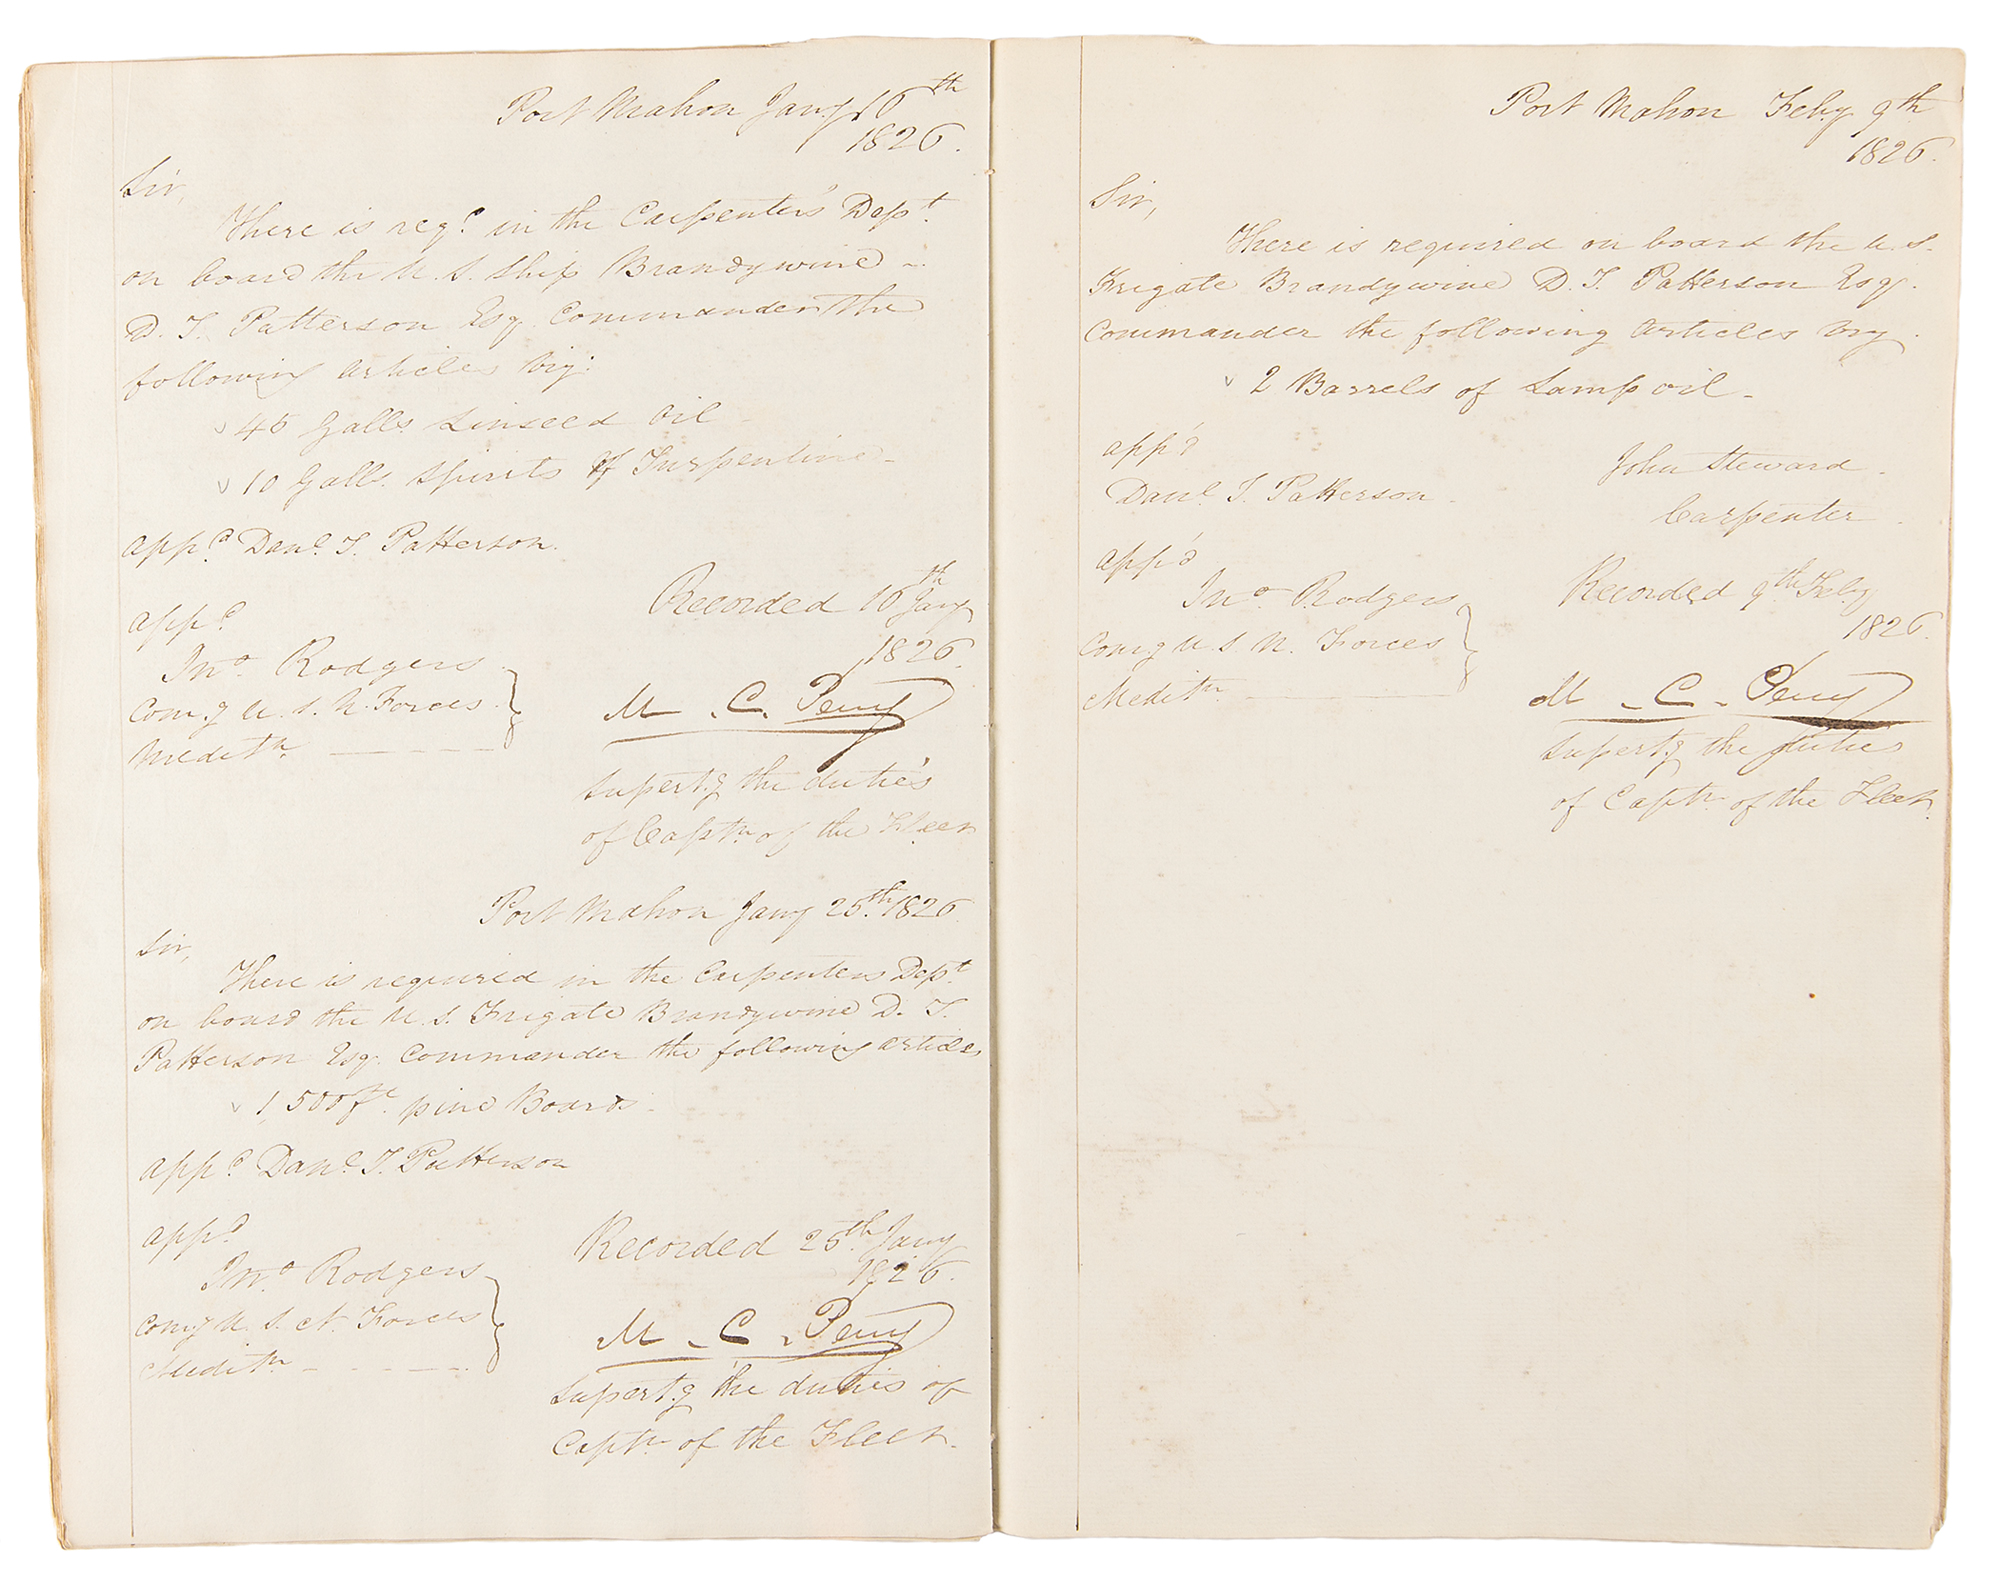 Port Mahon Jany 16th
1826.
Sir,
There is reqd. in the Carpenter's Dept.
on board the U. S. Ship Brandywine
D. T. Patterson Esq Commander the
following articles viz:
45 Galls Linseed Oil
10 Galls. Spirits of Turpentine
appd Danl. T. Patterson.
appd
Jno. Rodgers
Com.g U. S. N. Forces
Medit.n
Recorded 16th Jany
1826.
M. C. Perry
Supert.g the duties
of Captn of the Fleet
Port Mahon Jany 25th. 1826
Sir,
There is required in the Carpenters Dept.
on board the U. S. Frigate Brandywine D. T.
Patterson Esq. Commander the following articles
1,500 ft. pine Boards
appd Danl. T. Patterson
appd
Jno. Rodgers
Comg U. S. N. Forces
Medit.n
Recorded 25th. Jany
1826.
M. C. Perry
Supert.g the duties of
Captn of the Fleet.
Port Mahon Feby 9th
1826.
Sir,
There is required on board the U. S.
Frigate Brandywine D. T. Patterson Esqr.
Commander the following articles viz
2 Barrels of Lamp oil
app'd
Danl. T. Patterson
John Steward
Carpenter
app'd
Jno. Rodgers
Comg U. S. N. Forces
Meditn
Recorded 9th Feby
1826.
M. C. Perry
Supert.g the duties
of Captn of the Fleet.